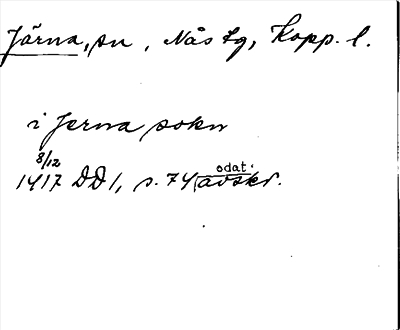 Järna, sn, Nås tg, Kopp. l.
i Jerna sokn
8/12
1417 DD1, s. 74 (odat. avskr.